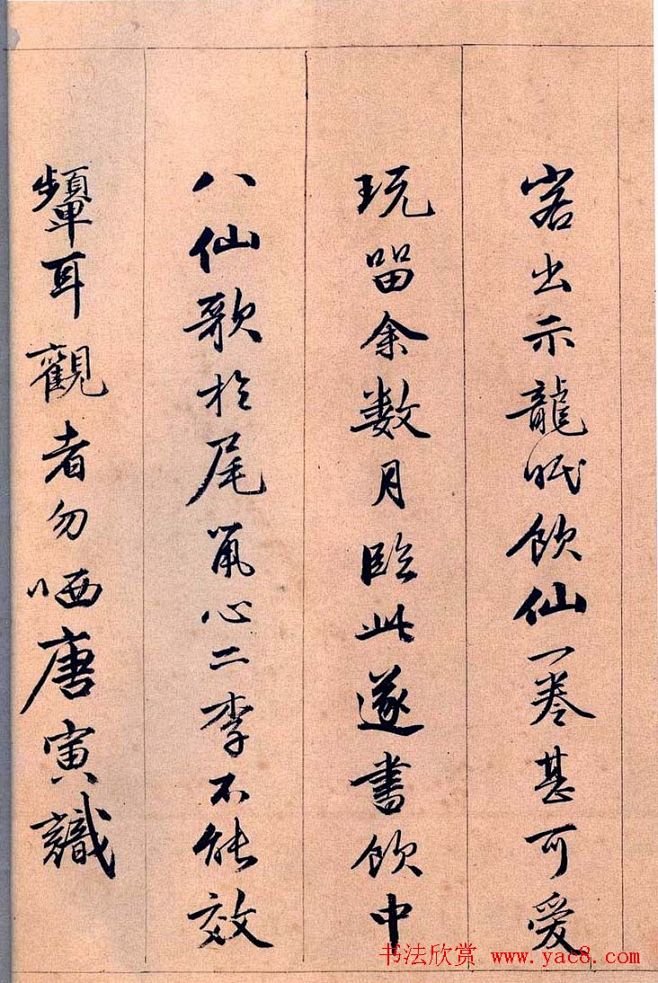 客出示龍眠飲仙一卷甚可爱
玩留余数月臨此遂書飲中
八仙歌於尾心二李不能效
顰耳觀者勿哂唐寅識
书法欣赏 www.yac8.com